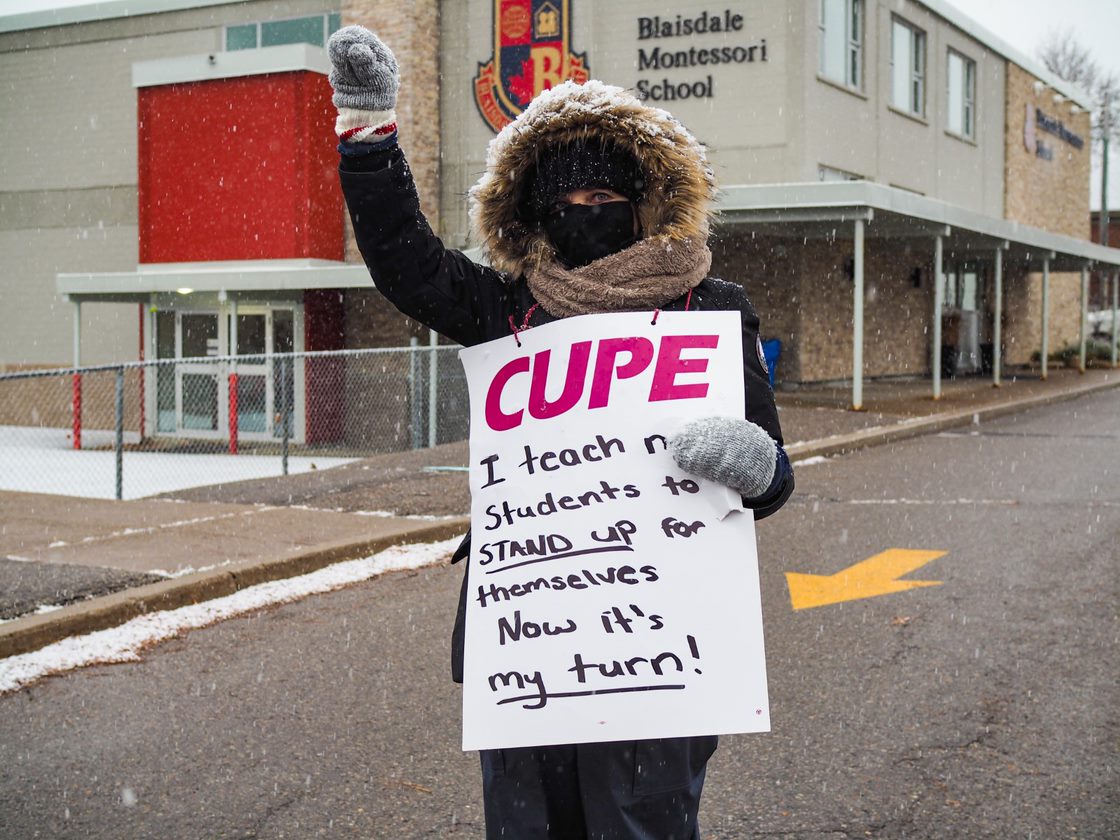 Blaisdale
Montessori
School
B
CUPE
I teach
Students to
STAND UP for
themselves
Now it's
my turn!